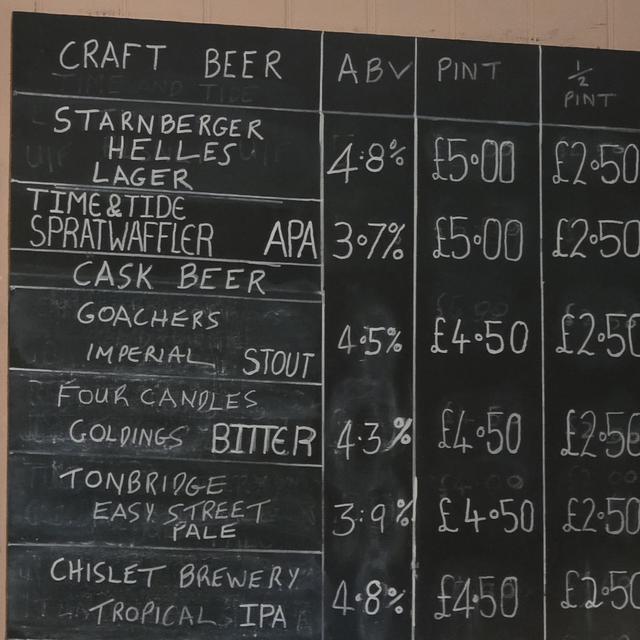 CRAFT BEER ABV PINT 1/2 PINT
STARNBERGER
HELLES
LAGER 4.8% £5.00 £2.50
TIME&TIDE
SPRATWAFFLER APA 3.7% £5.00 £2.50
CASK BEER
GOACHERS
IMPERIAL STOUT 4.5% £4.50 £2.50
FOUR CANDLES
GOLDINGS BITTER 4.3% £4.50 £2.50
TONBRIDGE
EASY STREET
PALE 3.9% £4.50 £2.50
CHISLET BREWERY
TROPICAL IPA 4.8% £4.50 £2.50